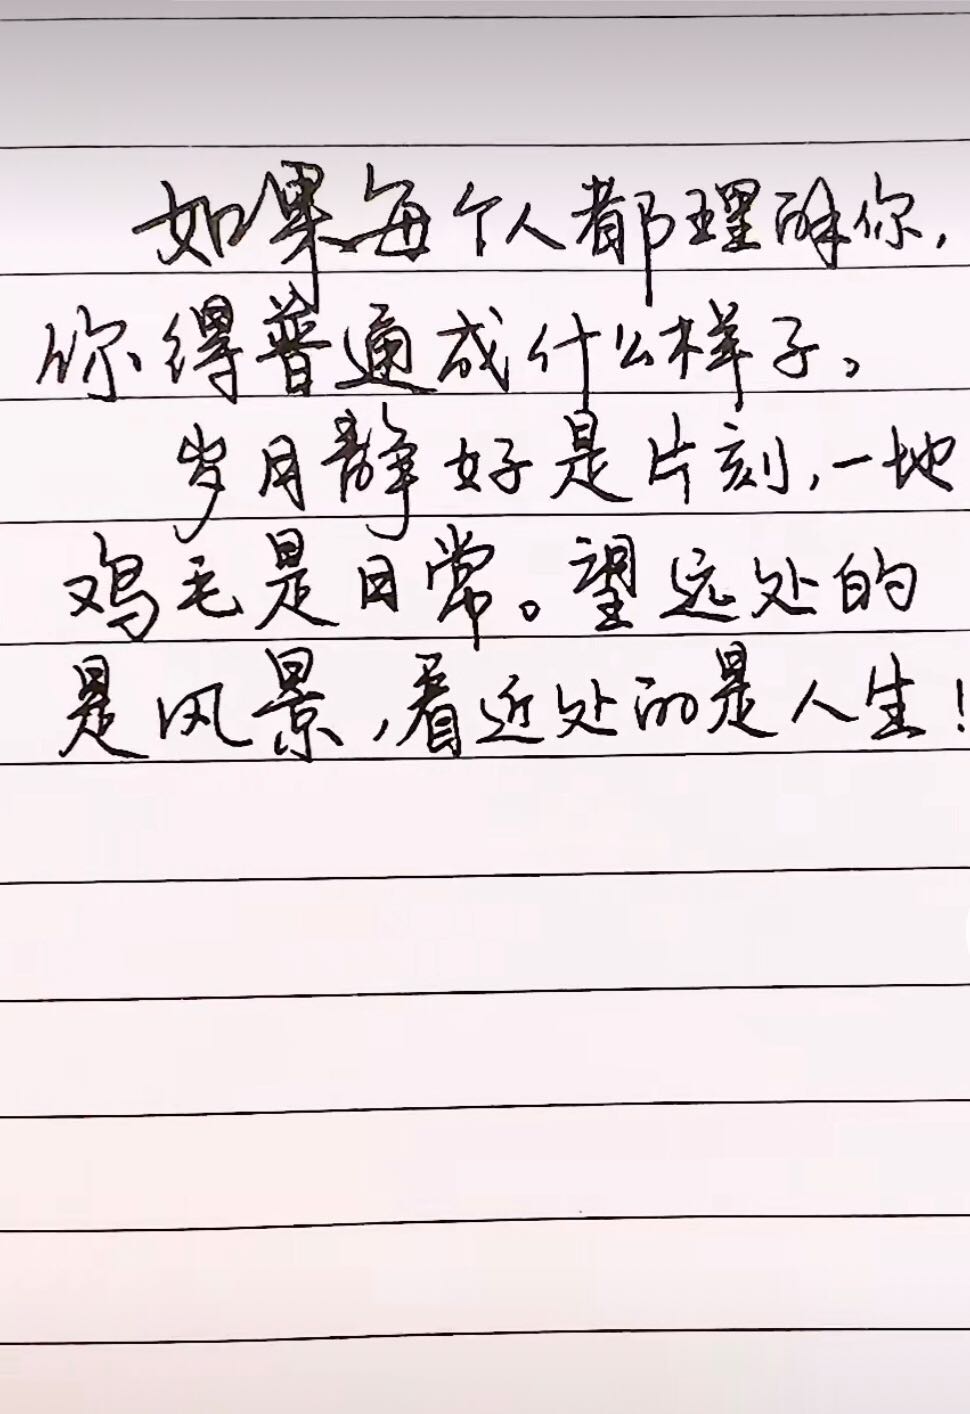 如果每个人都理解你，
你得普通成什么样子。
岁月静好是片刻，一地
鸡毛是日常。望远处的
是风景，看近处的是人生！